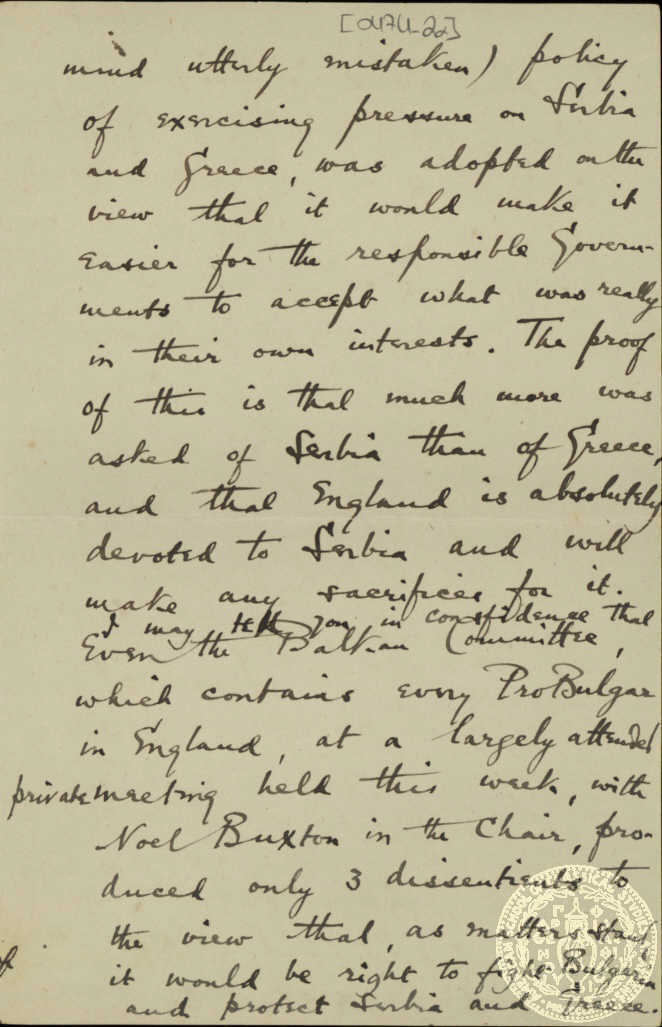 mind utterly mistaken) policy
of exercising pressure on Serbia
and Greece, was adopted on the
view that it would make it
easier for the responsible Govern-
ments to accept what was really
in their own interests. The proof
of this is that much more was
asked of Serbia than of Greece,
and that England is absolutely
devoted to Serbia and will
make any sacrifices for it.
I may tell you in confidence that
Even the Balkan Committee,
which contains every ProBulgar
in England, at a largely attended
private meeting held this week, with
Noel Buxton in the Chair, pro-
duced only 3 dissentients to
the view that, as matters stand,
it would be right to fight Bulgaria
and protect Serbia and Greece.